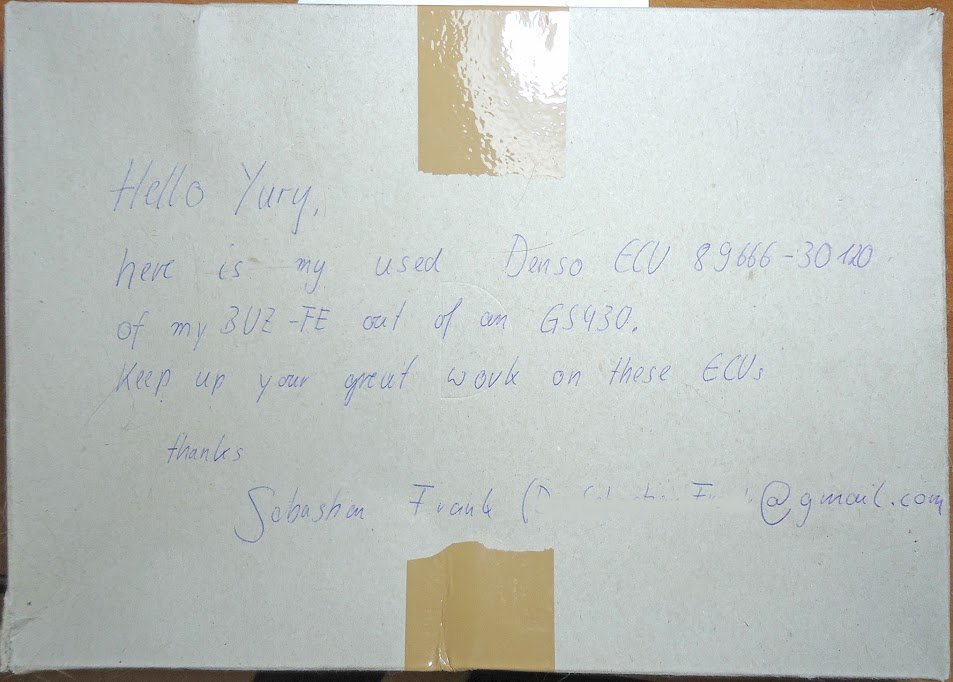 Hello Yury,
here is my used Denso ECU 89666-30120
of my 3UZ-FE out of an GS430.
Keep up your great work on these ECUs
thanks
Sebastian Frank ( @gmail.com